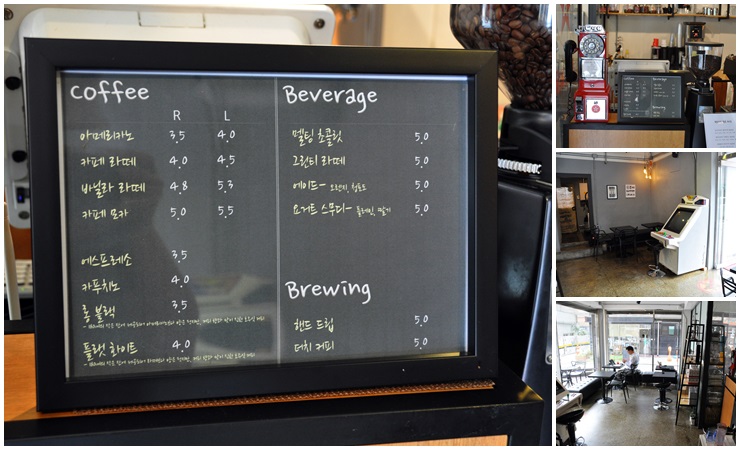 Coffee
R L
아메리카노 3.5 4.0
카페 라떼 4.0 4.5
바닐라 라떼 4.8 5.3
카페 모카 5.0 5.5
에스프레소 3.5
카푸치노 4.0
롱 블랙 3.5
플랫 화이트 4.0
Beverage
멜팅 초콜릿 5.0
그린티 라떼 5.0
에이드- 오렌지, 청포도 5.0
요거트 스무디- 플레인, 딸기 5.0
Brewing
핸드 드립 5.0
더치 커피 5.0